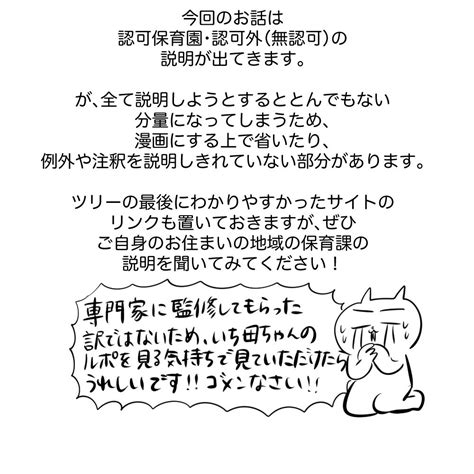 今回のお話は
認可保育園・認可外（無認可）の
説明が出てきます。
が、全て説明しようとするととんでもない
分量になってしまうため、
漫画にする上で省いたり、
例外や注釈を説明しきれていない部分があります。
ツリーの最後にわかりやすかったサイトの
リンクも置いておきますが、ぜひ
ご自身のお住まいの地域の保育課の
説明を聞いてみてください！
専門家に監修してもらった
訳ではないため、いち母ちゃんの
ルポを見る気持ちで見ていただけたら
うれしいです!!ゴメンなさい!!